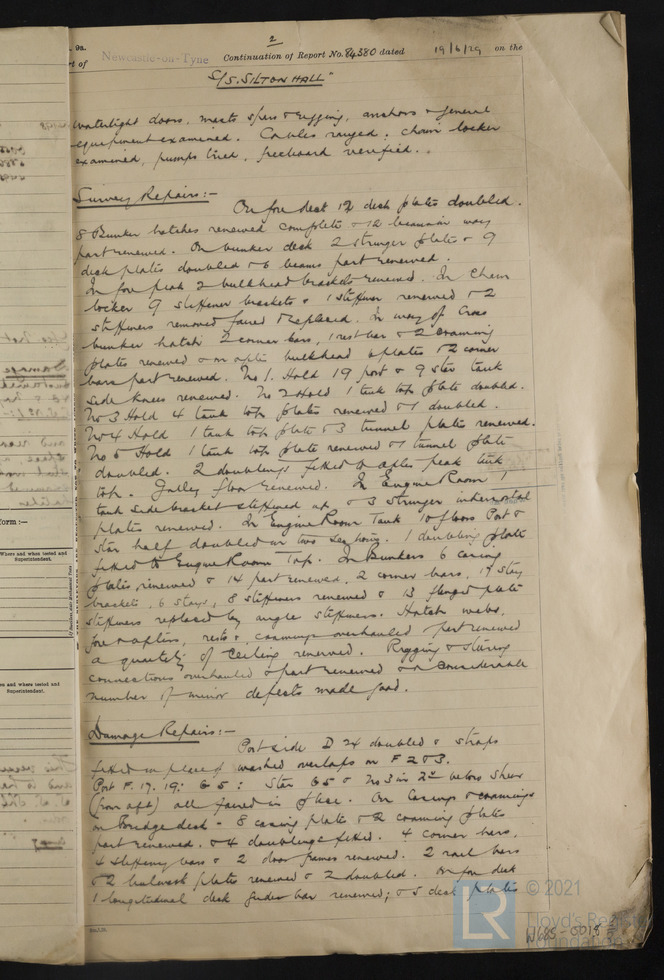 2
9a.
rt of
Newcastle-on-Tyne Continuation of Report No. 84380 dated 19/6/29 on the
S/S. "SILTON HALL"
watertight doors, masts spars & rigging, anchors & general
equipment examined. Cables ranged, chain locker
examined, pumps tried, freeboard verified.
Survey Repairs:-
On fore deck 12 deck plates doubled.
8 Bunker hatches renewed complete & 12 beams in way
part renewed. On bunker deck 2 stringer plates & 9
deck plates doubled & 6 beams part renewed.
In fore peak 2 bulkhead brackets renewed. In Chain
locker 9 stiffener brackets & 1 stiffener renewed & 2
stiffeners removed faired & replaced. In way of Cross
bunker hatch 2 corner bars, 1 rest bar & 2 coaming
plates renewed & on after bulkhead plates & 2 corner
bars part renewed. No 1. Hold 19 port & 9 star tank
side knees renewed. No 2 Hold 1 tank top plate doubled.
No 3 Hold 4 tank top plates renewed & 1 doubled.
No 4 Hold 1 tank top plate & 3 tunnel plates renewed.
No 5 Hold 1 tank top plate renewed & 1 tunnel plate
doubled. 2 doublings fitted to after peak tank
top. Galley floor renewed. In Engine Room 1
tank side bracket stiffened & 3 stringer intercostal
plates renewed. In Engine Room Tank 10 floors Port &
Star half doubled in two sections. 1 doubling plate
fitted to Engine Room Top. In Bunkers 6 casing
plates renewed & 14 part renewed, 2 corner bars, 19 stay
brackets, 6 stays, 8 stiffeners renewed & 13 flanged plate
stiffeners replaced by angle stiffeners. Hatch webs,
fore & afters, rests & coamings overhauled & part renewed
a quantity of Ceiling renewed. Rigging & steering
connections overhauled & part renewed & a considerable
number of minor defects made good.
Damage Repairs:-
Port side D 24 doubled & straps
fitted in place of washed overlaps on F 2 & 3.
Port F. 17. 19: G 5: Star G5 & No 3 in 2nd below Sheer
(from aft) all faired in place. On Casings & coamings
on Bridge deck - 8 casing plates & 2 coaming plates
part renewed, & 4 doublings fitted. 4 corner bars,
4 stiffening bars & 2 door frames renewed. 2 rail bars
& 2 bulwark plates renewed & 2 doubled. On fore deck
1 longitudinal deck girder bar renewed; & 5 deck plates
form :-
Where and when tested and
Superintendent.
Superintendent.
LR
© 2021
Lloyd's Register
Foundation
W685-0018